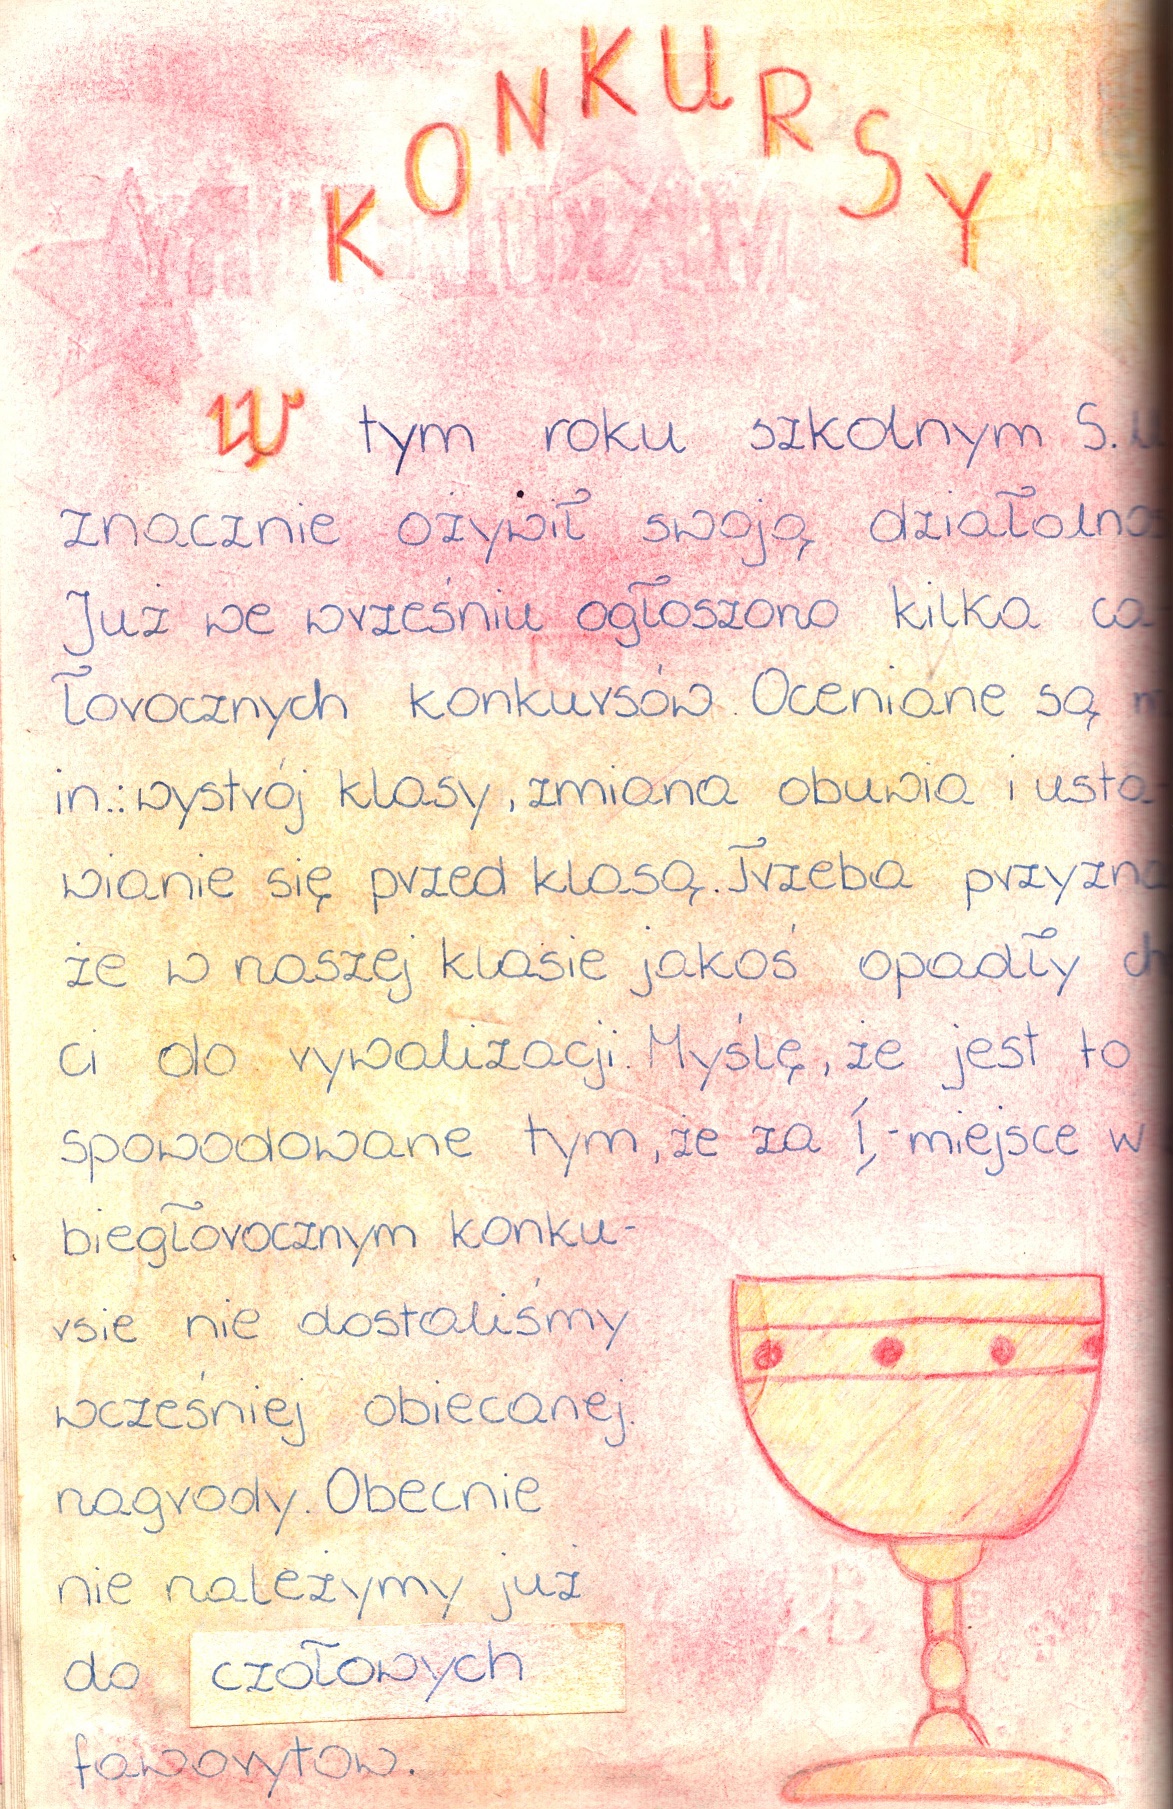 KONKURSY
W tym roku szkolnym S.
znacznie ożywił swoją działalnoś
Już we wrześniu ogłoszono kilka ca-
łorocznych konkursów. Oceniane są
in.: wystrój klasy, zmiana obuwia i usta-
wianie się przed klasą. Trzeba przyzna
że w naszej klasie jakoś opadły ch
ci do rywalizacji. Myślę, że jest to
spowodowane tym, że za I,-miejsce w
biegłorocznym konku-
rsie nie dostaliśmy
wcześniej obiecanej
nagrody. Obecnie
nie należymy już
do czołowych
faworytow.